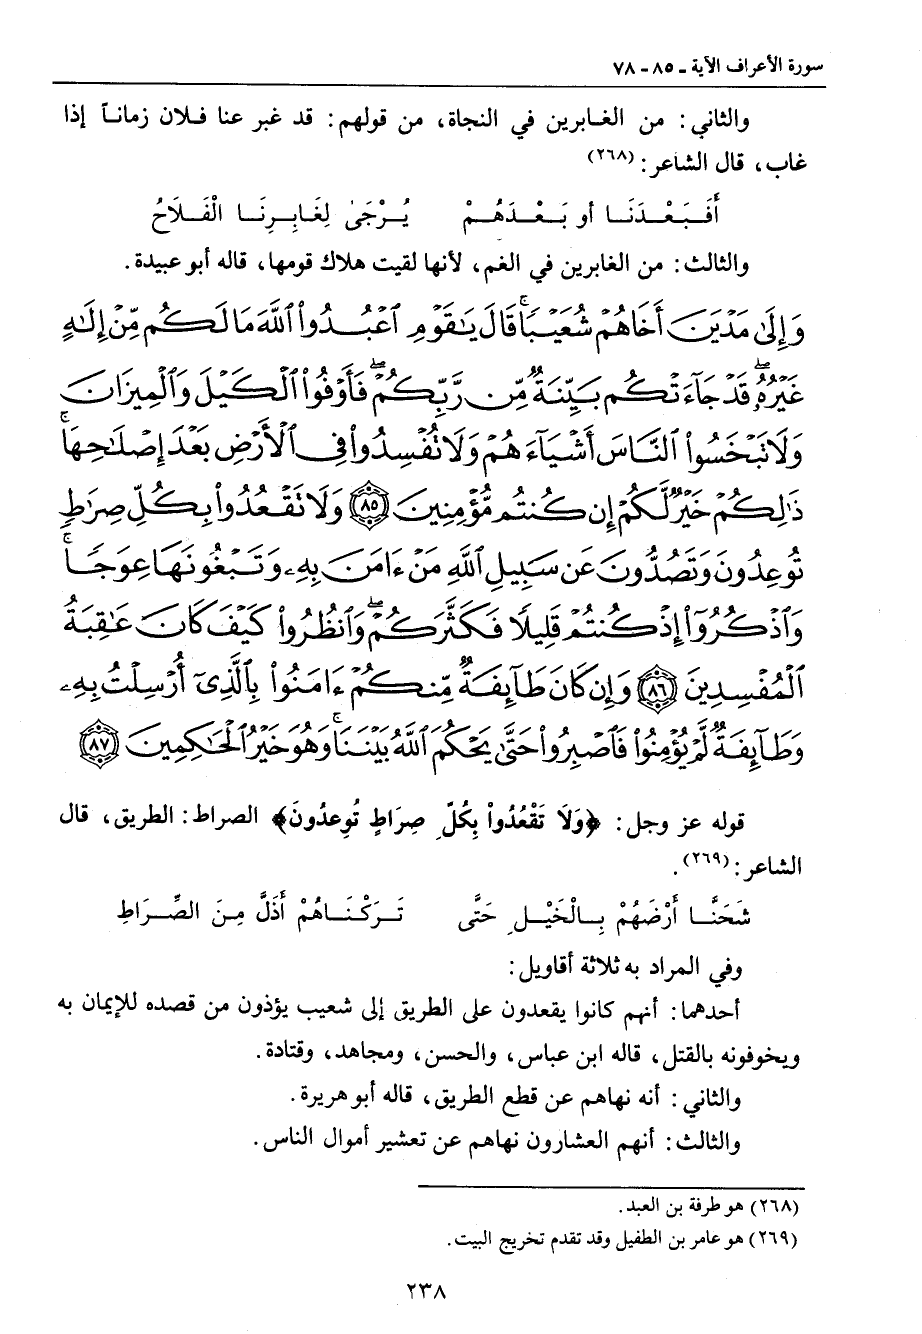 سورة الأعراف الآية ـ ٨٥ ـ ٧٨
والثاني: من الغابرين في النجاة، من قولهم: قد غبر عنا فلان زماناً إذا
غاب، قال الشاعر:(٢٦٨)
أَفَبَعْدَنَا أو بَعْدَهُمْ يُرْجَىٰ لِغَابِرِنَا الْفَلَاحُ
والثالث: من الغابرين في الغم، لأنها لقيت هلاك قومها، قاله أبو عبيدة.
وَإِلَىٰ مَدْيَنَ أَخَاهُمْ شُعَيْبًا ۗ قَالَ يَٰقَوْمِ ٱعْبُدُوا۟ ٱللَّهَ مَا لَكُم مِّنْ إِلَٰهٍ
غَيْرُهُۥ ۖ قَدْ جَآءَتْكُم بَيِّنَةٌ مِّن رَّبِّكُمْ ۖ فَأَوْفُوا۟ ٱلْكَيْلَ وَٱلْمِيزَانَ
وَلَا تَبْخَسُوا۟ ٱلنَّاسَ أَشْيَآءَهُمْ وَلَا تُفْسِدُوا۟ فِى ٱلْأَرْضِ بَعْدَ إِصْلَٰحِهَا ۚ
ذَٰلِكُمْ خَيْرٌ لَّكُمْ إِن كُنتُم مُّؤْمِنِينَ ٨٥ وَلَا تَقْعُدُوا۟ بِكُلِّ صِرَٰطٍ
تُوعِدُونَ وَتَصُدُّونَ عَن سَبِيلِ ٱللَّهِ مَنْ ءَامَنَ بِهِۦ وَتَبْغُونَهَا عِوَجًا ۚ
وَٱذْكُرُوٓا۟ إِذْ كُنتُمْ قَلِيلًا فَكَثَّرَكُمْ ۖ وَٱنظُرُوا۟ كَيْفَ كَانَ عَٰقِبَةُ
ٱلْمُفْسِدِينَ ٨٦ وَإِن كَانَ طَآئِفَةٌ مِّنكُمْ ءَامَنُوا۟ بِٱلَّذِىٓ أُرْسِلْتُ بِهِۦ
وَطَآئِفَةٌ لَّمْ يُؤْمِنُوا۟ فَٱصْبِرُوا۟ حَتَّىٰ يَحْكُمَ ٱللَّهُ بَيْنَنَا ۚ وَهُوَ خَيْرُ ٱلْحَٰكِمِينَ ٨٧
قوله عز وجل: ﴿وَلَا تَقْعُدُواْ بِكُلِّ صِرَاطٍ تُوعِدُونَ﴾ الصراط: الطريق، قال
الشاعر:(٢٦٩).
شَحَنَّا أَرْضَهُمْ بِالْخَيْلِ حَتَّى تَرَكْنَاهُمْ أَذَلَّ مِنَ الصِّرَاطِ
وفي المراد به ثلاثة أقاويل:
أحدهما: أنهم كانوا يقعدون على الطريق إلى شعيب يؤذون من قصده للإيمان به
ويخوفونه بالقتل، قاله ابن عباس، والحسن، ومجاهد، وقتادة.
والثاني: أنه نهاهم عن قطع الطريق، قاله أبو هريرة.
والثالث: أنهم العشارون نهاهم عن تعشير أموال الناس.
(٢٦٨) هو طرفة بن العبد.
(٢٦٩) هو عامر بن الطفيل وقد تقدم تخريج البيت.
٢٣٨